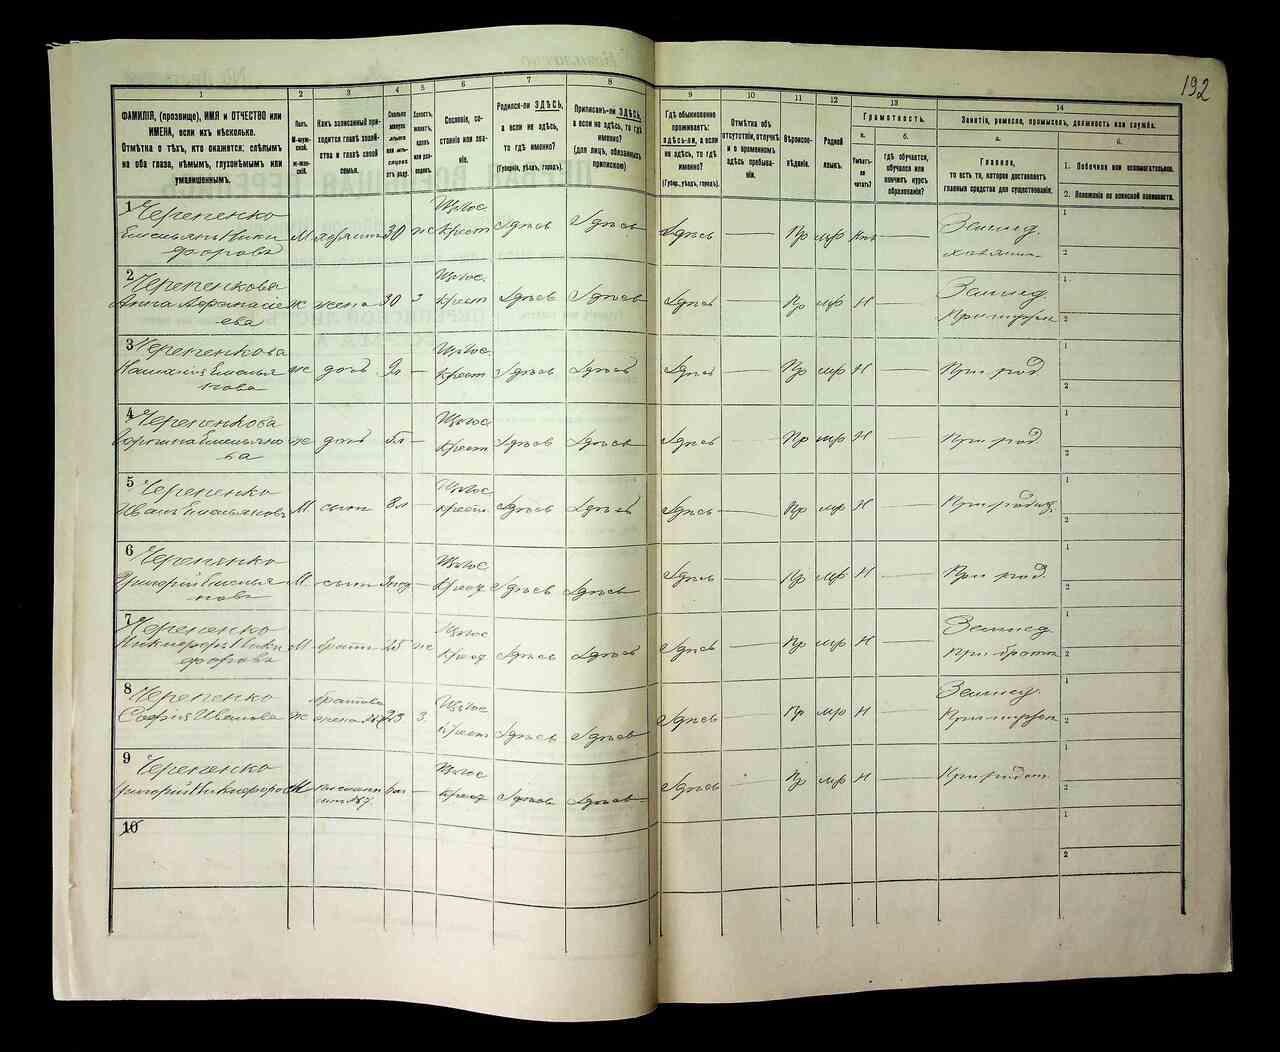 192
1
2
3
4
5
6
7
8
9
10
11
12
13
14
ФАМИЛІЯ, (прозвище), ИМЯ и ОТЧЕСТВО или
ИМЕНА, если ихъ нѣсколько.
Отмѣтка о тѣхъ, кто окажется: слѣпымъ
на оба глаза, нѣмымъ, глухонѣмымъ или
умалишоннымъ.
Полъ.
М-муж-
ской.
Ж-жен-
скій.
Какъ записанный при-
ходится главѣ хозяй-
ства и главѣ своей
семьи.
Сколько
минуло
лѣтъ
или мѣ-
сяцевъ
отъ роду.
Холостъ,
женатъ,
вдовъ
или раз-
веденъ.
Сословіе, со-
стояніе или зва-
ніе.
Родился-ли ЗДѢСЬ,
а если не здѣсь,
то гдѣ именно?
(Губернія, уѣздъ, городъ).
Приписанъ-ли ЗДѢСЬ,
а если не здѣсь, то гдѣ
именно?
(для лицъ, обязанныхъ
припискою)
Гдѣ обыкновенно
проживаетъ:
здѣсь-ли, а если
не здѣсь, то гдѣ
именно?
(Губер., уѣздъ, городъ).
Отмѣтка объ
отсутствіи, отлучкѣ
и о временномъ
здѣсь пребыва-
ніи.
Вѣроиспо-
вѣданіе.
Родной
языкъ.
Грамотность.
а.
Умѣетъ-
ли
читать?
б.
гдѣ обучается,
обучался или
кончилъ курсъ
образованія?
Занятіе, ремесло, промыселъ, должность или служба.
а.
Главное,
то есть то, которое доставляетъ
главныя средства для существованія.
б.
1. Побочное или вспомогательное.
2. Положеніе по воинской повинности.
1 Черепенко
Емельянъ Ники
форовъ
М
30
ж
Щѣлос.
Крест
Здѣсь
Здѣсь
Здѣсь
Пр
мр
Землед.
хозяинъ
1
2
2 Черепенкова
Анна Афанасіе
ева
ж
жена
30
з
Щѣлос.
Крест
Здѣсь
Здѣсь
Здѣсь
Пр
мр
Н
Землед.
При мужѣ
1
2
3 Черепенкова
Емелья
нова
ж
дочь
9л
Щѣлос.
Крест
Здѣсь
Здѣсь
Здѣсь
Пр
мр
Н
При род.
1
2
4 Черепенкова
Емельяно
ва
ж
дочь
5л
Щѣлос.
Крест
Здѣсь
Здѣсь
Здѣсь
Пр
мр
Н
При род.
1
2
5 Черепенко
Иванъ Емельяновъ
М
сынъ
8л
Щѣлос.
Крест.
Здѣсь
Здѣсь
Здѣсь
Пр
мр
Н
При родит.
1
2
6 Черепенко
Григорій Емелья
новъ
М
сынъ
Щѣлос.
Крест
Здѣсь
Здѣсь
Здѣсь
Пр
мр
Н
При род.
1
2
7 Черепенко
Никифоръ Ники
форовъ
М
братъ
25
ж
Щѣлос.
Крест
Здѣсь
Здѣсь
Здѣсь
Пр
мр
Н
Землед.
При братѣ
1
2
8 Черепенко
Софія Иванова
ж
братова
жена №7
23
з
Щѣлос.
Крест
Здѣсь
Здѣсь
Здѣсь
Пр
мр
Н
Землед.
При мужѣ
1
2
9 Черепенко
Григорій Никифоровъ
М
сынъ №7
Щѣлос.
Крест
Здѣсь
Здѣсь
Здѣсь
Пр
мр
Н
При родит.
1
2
10
1
2